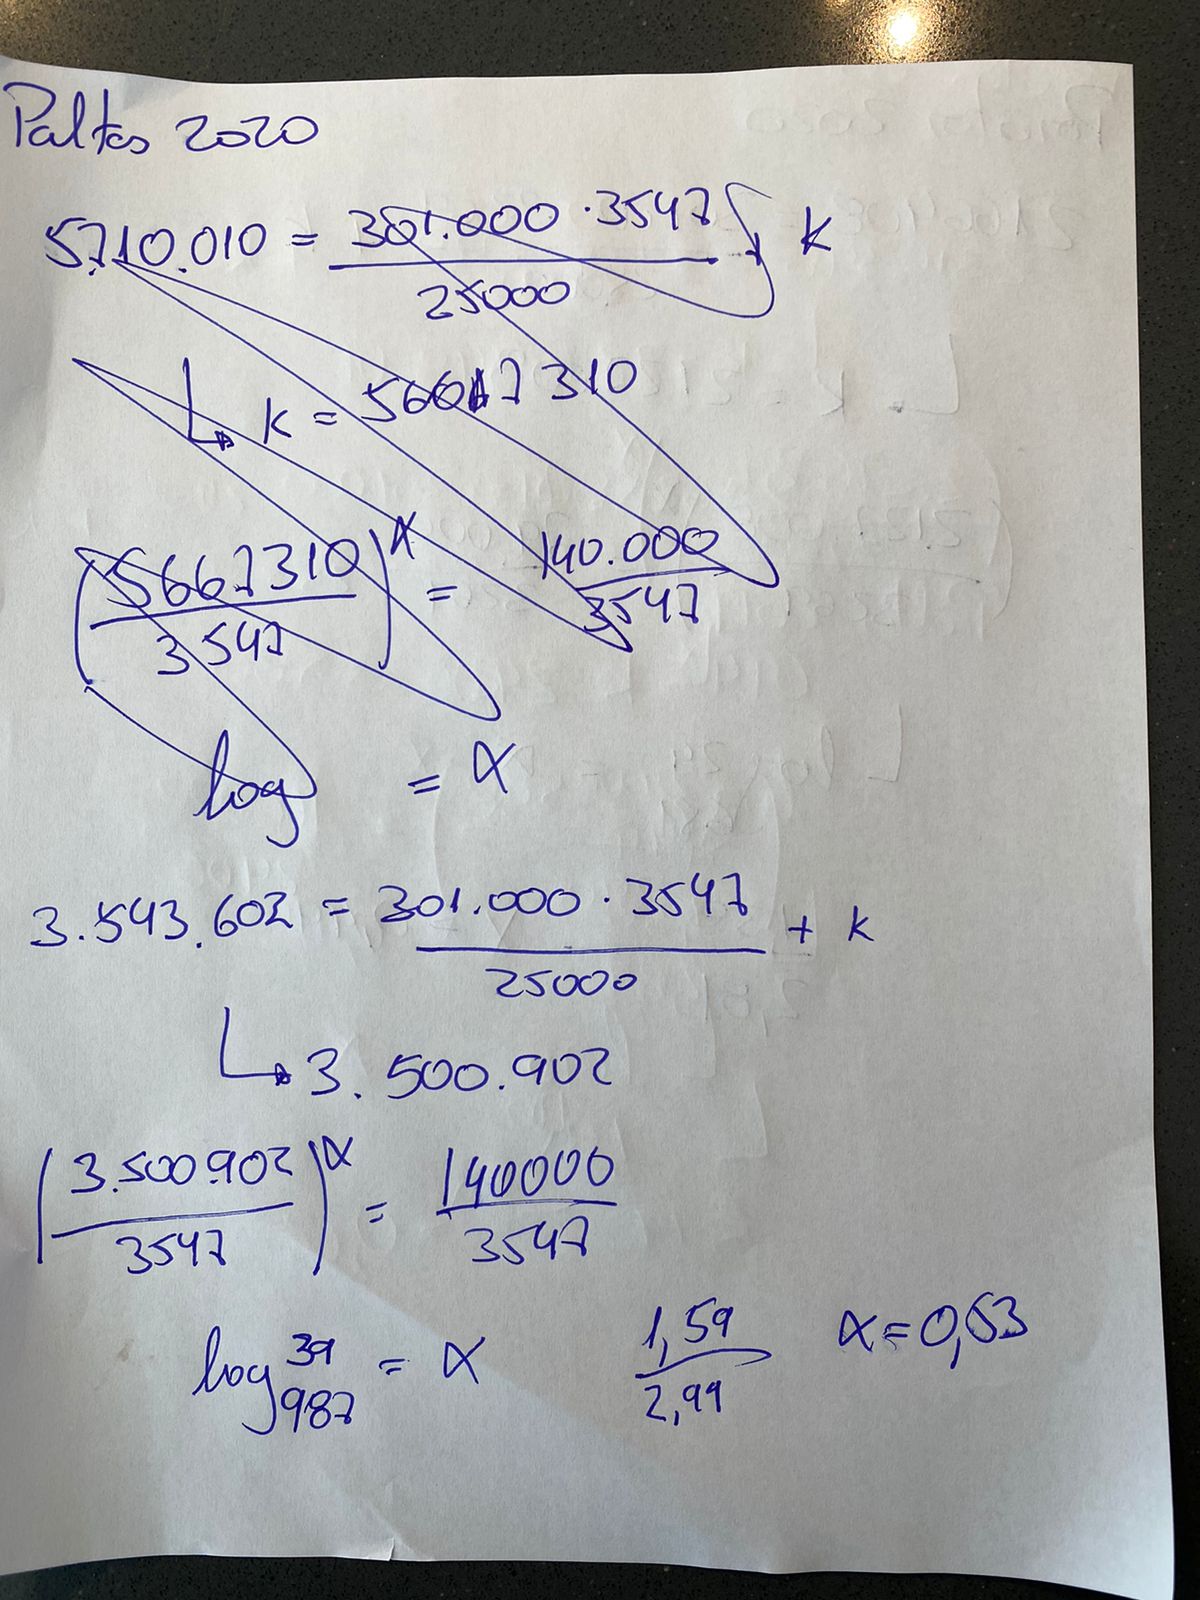 Paltas 2020
5.710.010 = 301.000 · 3547 / 25000 + k
k = 5667310
(5667310 / 3547)^α = 140.000 / 3547
log = α
3.543.602 = 301.000 · 3547 / 25000 + k
3.500.902
(3.500.902 / 3547)^α = 140000 / 3547
log 39 987 = α 1,59 / 2,99 α = 0,53